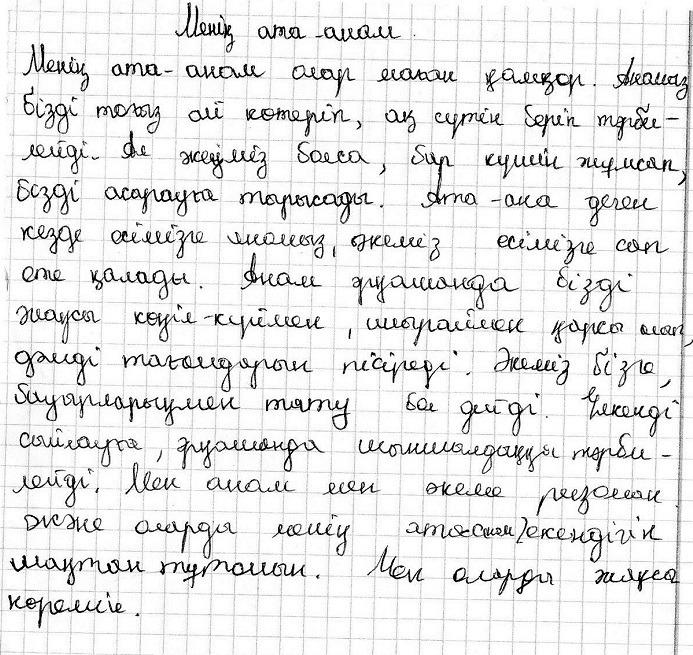 Менің ата-анам.
Менің ата-анам олар маған қамқор. Анамыз
бізді тоғыз ай көтеріп, ақ сүтін беріп тәрби-
лейді. Ал әкеміз болса, бар күшін жұмсап,
бізді асырауға тырысады. Ата-ана деген
кезде есімізге анамыз, әкеміз есімізге сап
ете қалады. Анам әрқашанда бізді
жақсы көңіл-күймен, шыраймен қарсы алып,
дәмді тағамдарын пісіреді. Әкеміз бізге,
бауырларыңмен тату бол дейді. Үлкенді
сыйлауға, әрқашанда шыншылдыққа тәрби-
лейді. Мен анам мен әкеме ризамын
және оларды менің ата-анам екендігін
мақтан тұтамын. Мен оларды жақсы
көремін.